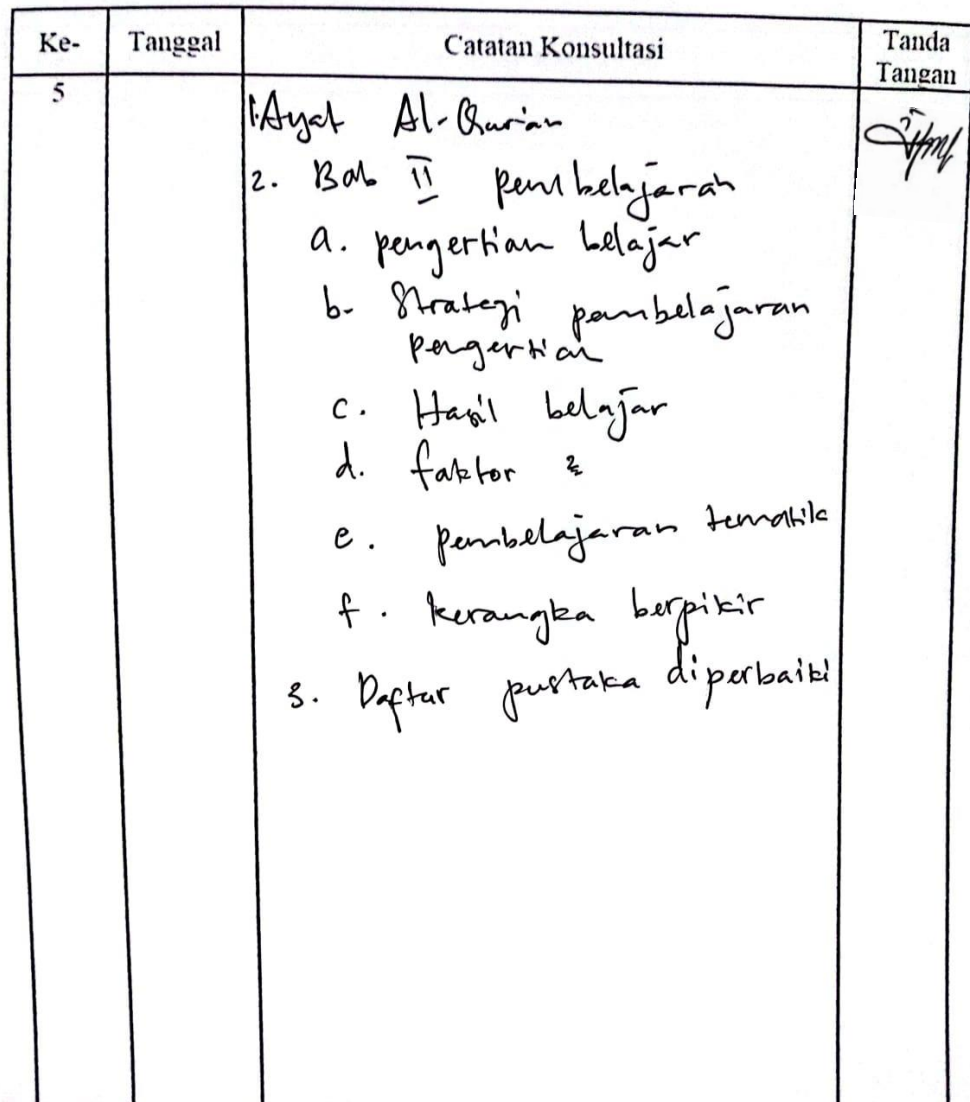 Ke- Tanggal Catatan Konsultasi Tanda Tangan
5
1. Ayat Al-Qur'an
2. Bab II pembelajaran
a. pengertian belajar
b. Strategi pembelajaran
pengertian
c. Hasil belajar
d. faktor 2
e. pembelajaran tematik
f. kerangka berpikir
3. Daftar pustaka diperbaiki